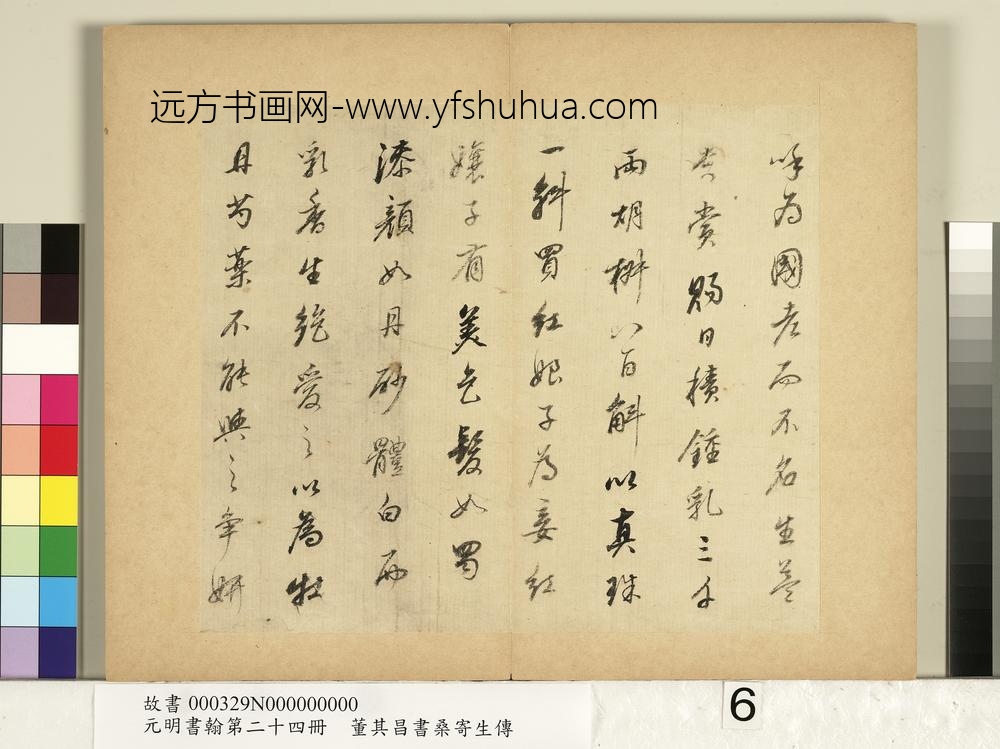 远方书画网-www.yfshuhua.com
呼為國老而不名生益
貴賞賜日積鍾乳三千
兩胡椒八百斛以真珠
一斛買紅娘子為妾紅
孃子有美色髮如蜀
漆顏如丹砂體白而
乳香生絕愛之以為牡
丹芍藥不能與之爭妍
故書 000329N000000000
元明書翰第二十四冊　董其昌書桑寄生傳
6